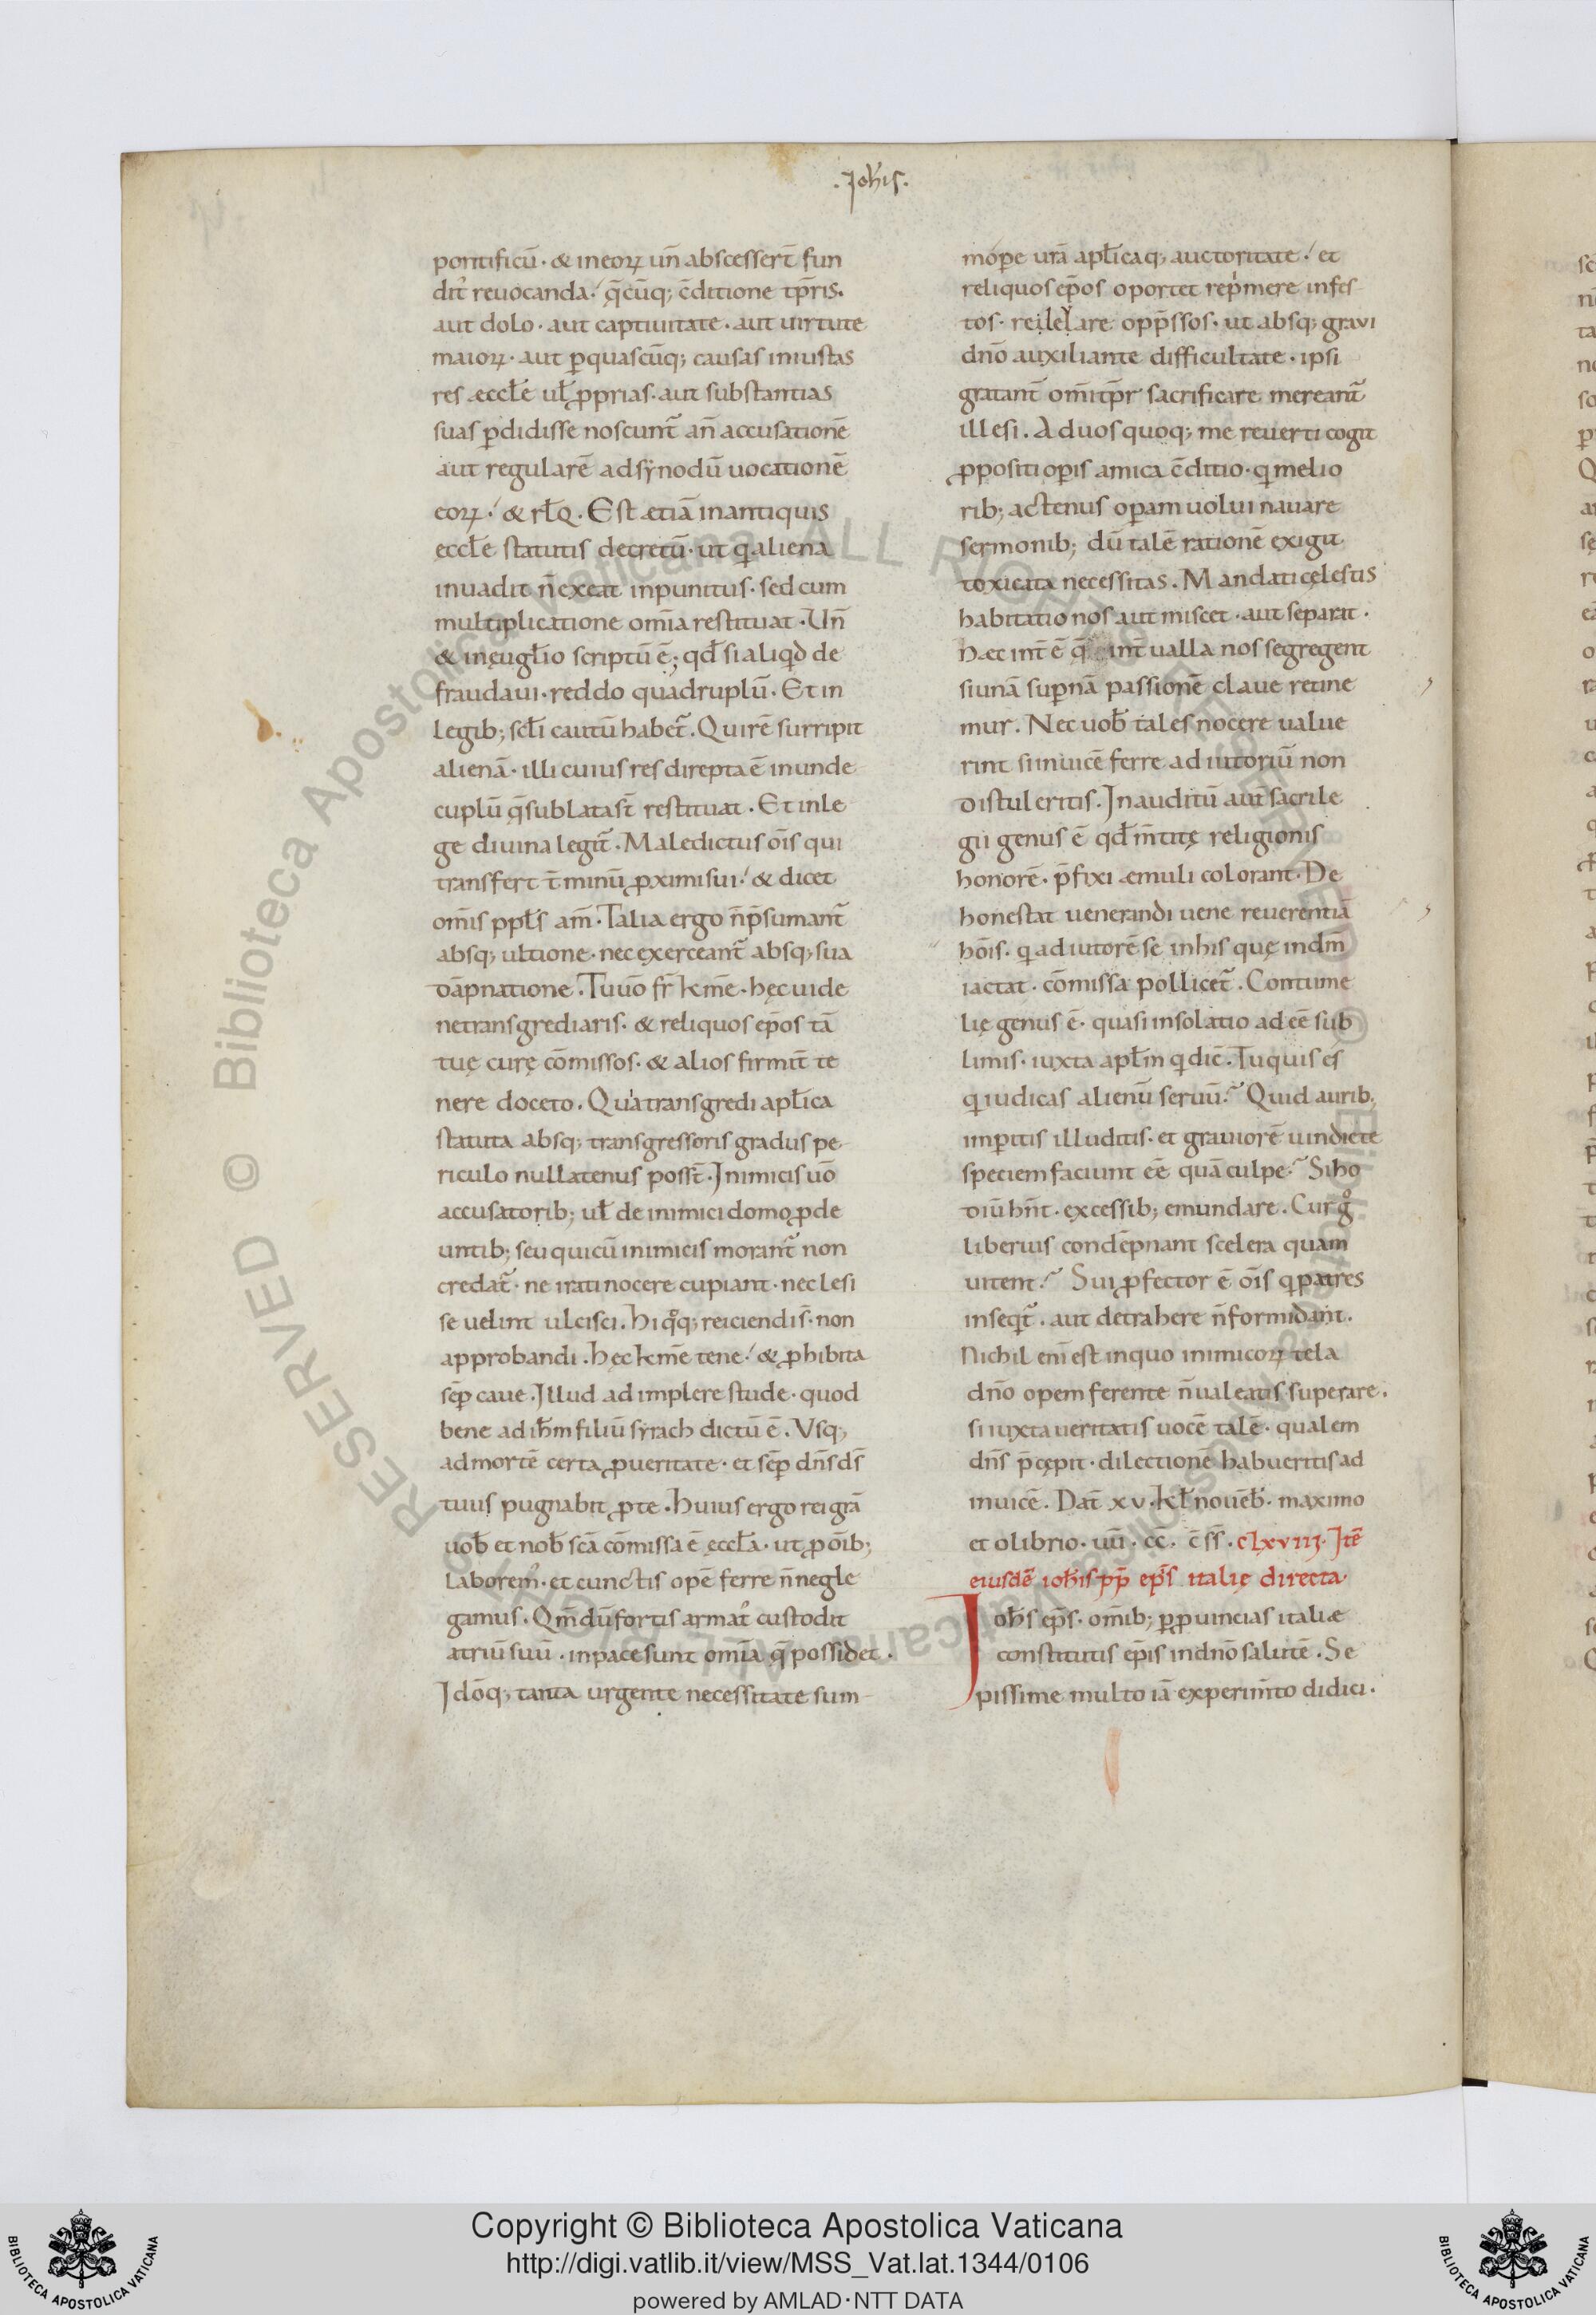 .Ioħis.
pontificū· & ineoꝝ un̄ abscesserт̄ fun
dit᷒ reuocanda·́ q̄cūq; c̄ditione tp̄ris·
aut dolo· aut captiuitate· aut uirtute
maioꝝ· aut ꝑquascūq; causas iniustas
res æccłe uł ꝓprias· aut substantias
suas ꝑdidisse noscunt̃ an̄ accusationē
aut regularē adsẏnodū uocationē
eoꝝ·́ & rłQ. Est ætiā inantiquis
eccłe statutis decretū· ut qͥ aliena
inuadit n̄ exeat inpunitus· sed cum
multiplicatione om̄ia restituat· Un̄
& inęugłio scriptū ē; qđ si aliqͥd de
fraudaui· reddo quadruplū· Et in
legib; scłi cautū habet̃. Qui rē surripit
alienā· illi cuius res direpta ē inunde
cuplū q̄ sublata st̄ restituat· Et inle
ge diuina legit̃. Maledictus oīs qui
transfert t̄minū ꝓximi sui·́ & dicet
om̄is ppłs am̄· Talia ergo n̄ p̄sumant̃
absq; ultione· nec exerceant̃ absq; sua
dāpnatione. Tu uō fr̄ km̄e· hęc uide
netransgrediaris· & reliquos ep̄os tā
tuę curę cōmissos· & alios firmit̄ te
nere doceto. Quia transgredi apłica
statuta absq; transgressoris gradus pe
riculo nullatenus posst̄· Inimicis uō
accusatorib; uł de inimici domo ꝓde
untib; seu quicū inimicis morant̃ non
credat̃· ne irati nocere cupiant· nec lesi
se uelint ulcisci. Hi qͦq; reiciendi s̄· non
approbandi. Hęc kme tene·́ & ꝓhibita
sēꝑ caue. Illud adimplere stude· quod
bene ad iħm filiū sẏrach dictū ē. Vsq;
admortē certa ꝓueritate· et sēꝑ dn̄s ds̄
tuus pugnabit ꝓte. Huius ergo rei grā
uob̄ et nob̄ scā cōmissa ē ęccła· ut ꝓ oīb;
laborem᷒· et cunctis opē ferre n̄negle
gamus. Qm̄ dū fortis armat᷒ custodit
atriū suū· inpace sunt om̄ia q̄ possidet.
Idōq; tanta urgente necessitate sum-
mópe urā apłicaq; auctoritate·́ et
reliquos ep̄os oportet rep͛mere infes-
tos· releuare opp̄ssos· ut absq; graui
dnō auxiliante difficultate· ipsi
gratant̄ om̄itp̄r sacrificare mereant̃
illesi. Aduos quoq; me reuerti cogit
ꝓpositi opis amica c̄ditio· qͥ melio
rib; actenus opam uolui nauare
sermonib; dū talē rationē exigit
toxicata necessitas. Mandati cęlestis
habitatio nos aut miscet· aut separat·
Hæc int̄ ē q̄ int̄ualla nos segregent
si unā supnā passionē claue retine
mur. Nec uob̄ tales nocere ualue
rint si inuicē ferre adiutoriū non
distuleritis. Inauditū aut̄ sacrile
gii genus ē qđ m̄titę religionis
honorē· p̄fixi æmuli colorant· De
honestat uenerandi uene reuerentiā
hōis· qͥ adiutorē se inhis quę indm̄
iactat· cōmissa pollicet̃. Contume
lię genus ē· quasi insolatio ad eē sub
limis· iuxta apłm qͥ dic̄. Tu quis es
qͥ iudicas alienū seruū·̃ Quid aurib;
impitis illuditis· et grauiorē uindictę
speciem faciunt eē quā culpe·̃ Si ho
diū hn̄t· excessib; emundare. Cur gͦ
liberius condēpnant scelera quam
uitent·̃ Sui ꝓfector ē oīs qͥ patres
inseqt̃· aut detrahere n̄formidant.
Nichil enī est inquo inimicoꝝ tela
dnō opem ferente n̄ualeatis superare.
si iuxta ueritatis uocē talē· qualem
dn̄s p̄cępit· dilectionē habueritis ad
inuicē. Dat̄ xv· kł nouēb̄· maximo
et olibrio· uū· cc· c̄ss̄· clxviij. Itē
eiusdē ioħis pp̄ ep̄s italię directa·
Ioħs ep̄s· om̄ib; ꝑ ꝓuincias italiæ
constitutis ep̄is indnō salutē. Se
pissime multo iā experim̄to didici.
RESERVED © Biblioteca Apostolica Vaticana. ALL RIGHTS RESERVED © Biblioteca Apostolica Vaticana. ALL RIGHTS
BIBLIOTECA APOSTOLICA VATICANA
Copyright © Biblioteca Apostolica Vaticana
http://digi.vatlib.it/view/MSS_Vat.lat.1344/0106
powered by AMLAD·NTT DATA
BIBLIOTECA APOSTOLICA VATICANA